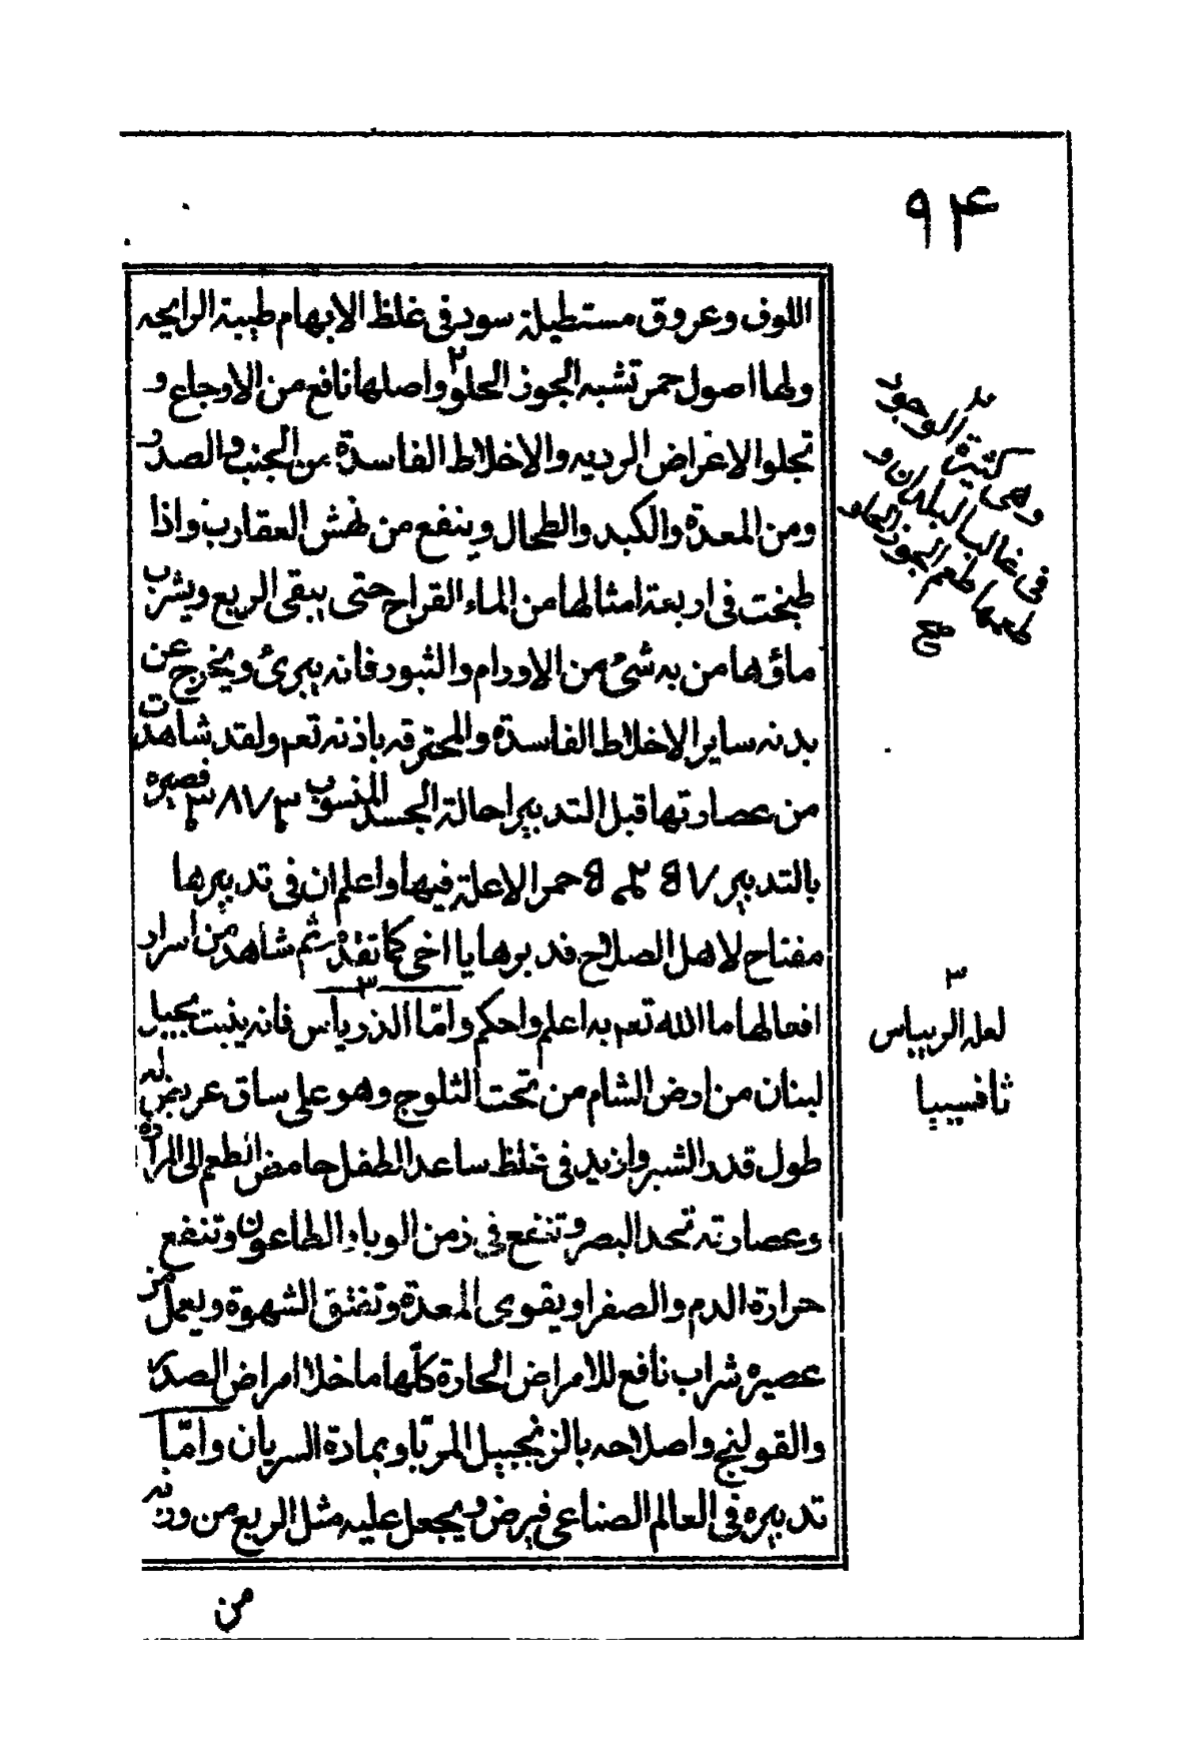 ٩٤
اللوف وعروق مستطيلة سود في غلظ الابهام طيبة الرايحه
ولها اصول حمر تشبه الجوز الحلو٢ واصلها نافع من الاوجاع و
تجلو الاعراض الرديه والاخلاط الفاسدة من الجنب والصدر
ومن المعدة والكبد والطحال وينفع من نهش العقارب واذا
طبخت في اربعة امثالها من الماء القراح حتى يبقى الربع ويشرب
ماؤها من به شئ من الاورام والثبور فانه يبرئ ويخرج عن
بدنه ساير الاخلاط الفاسدة والمحترقه باذنه تعم ولقد شاهدت
من عصارتها قبل التدبير احالة الجسد المنسوب فصيره
بالتدبير حمر الاعلة فيها واعلم ان في تدبيرها
مفتاح لاهل الصلاح فدبرها يا اخي كما تقدم ثم شاهد من اسرار
افعالها ما الله تعم به اعلم واحكم وامّا الذرياس٣ فانه ينبت بجبل
لبنان من ارض الشام من تحت الثلوج وهو على ساق عريض له
طول قدر الشبر وازيد في غلظ ساعد الطفل حامض الطعم الى المرارة
وعصارته تحد البصر وتنفع في زمن الوباء الطاعون وتنفع
حرارة الدم والصفرا ويقوى المعدة وتفتق الشهوة ويعمل من
عصيره شراب نافع للامراض الحارة كلّها ما خلا امراض الصدر
والقولنج واصلاحه بالزنجبيل المربّا وبمادة السريان وامّا
تدبيره في العالم الصناعى فيرض ويجعل عليه مثل الربع من وزنه
من
وهى كثيرة الوجود
في غالب البلدان و
طعمها طعم الجوز الحلو
صح
٣
لعله الريباس
ثافسيا